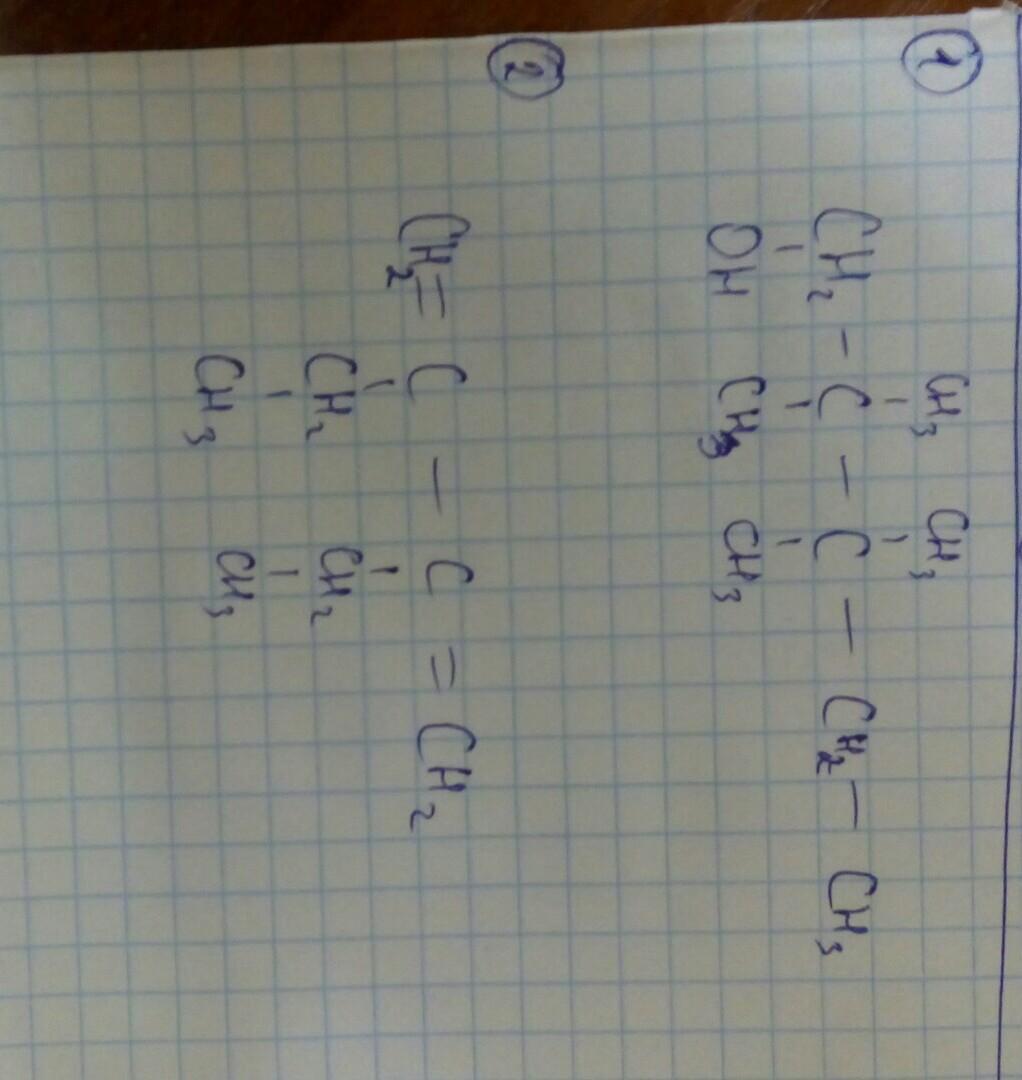 1
CH3 CH3
CH2 - C - C - CH2 - CH3
OH CH3 CH3
2
CH2 = C - C = CH2
CH2 CH2
CH3 CH3